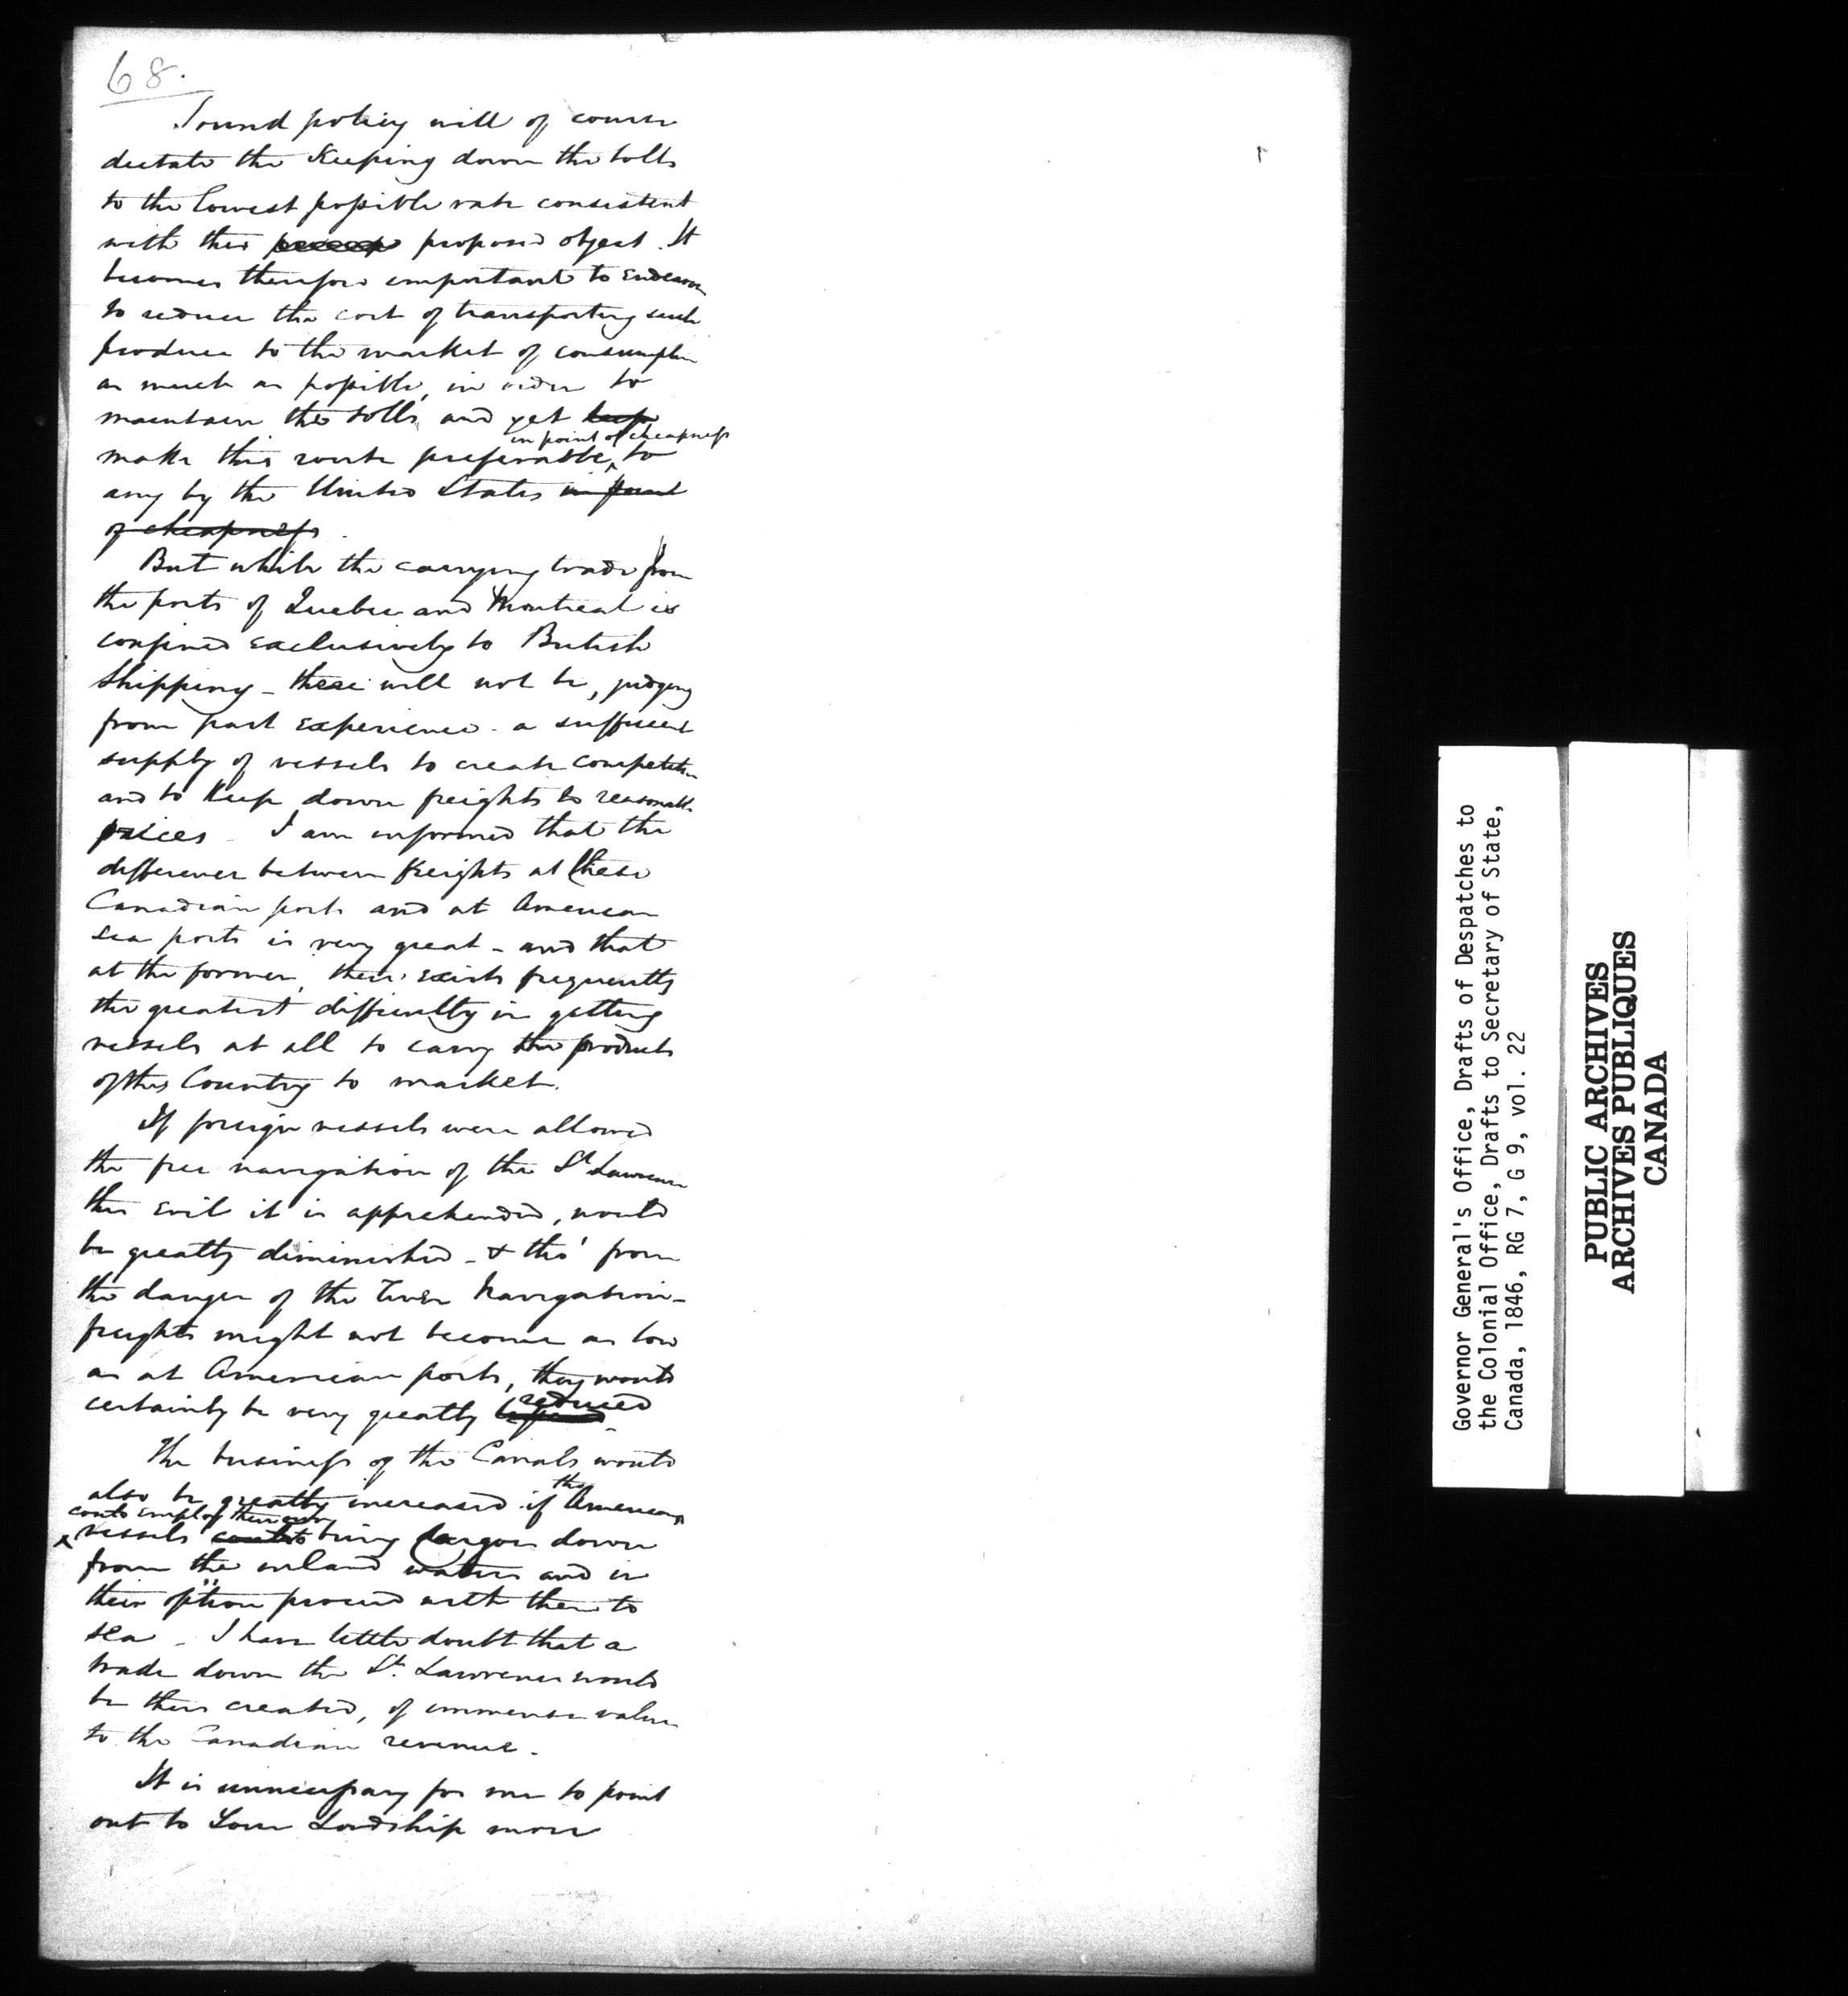 68.
Sound policy will of course
dictate the Keeping down the tolls
to the lowest possible rate consistent
with this proposed object. It
becomes therefore important to Endeavour
to reduce the cost of transporting such
produce to the market of consumption
as much as possible, in order to
maintain the tolls and yet keep
in point of cheapness
make this route preferable, to
any by the United States in point
of cheapness.
But while the carrying trade from
the ports of Quebec and Montreal is
confined exclusively to British
Shipping - there will not be, judging
from past experience - a sufficient
supply of vessels to create competition
and to Keep down freights to reasonable
prices - I am informed that the
difference between freights at these
Canadian ports and at American
sea ports is very great - and that
at the former, there exists frequently
the greatest difficulty in getting
vessels at all to carry the products
of this Country to market.
If foreign vessels were allowed
the free navigation of the St Lawrence
this evil it is apprehended, would
be greatly diminished - & tho' from
the danger of the River Navigation -
freights might not become as low
as at American ports, they would
reduced
certainly be very greatly
The business of the Canals would
the
also be greatly increased if Americans
could employ their own
vessels could bring Cargoes down
from the inland waters and in
their option proceed with them to
sea - I have little doubt that a
trade down the St. Lawrence would
be thus created, of immense value
to the Canadian revenue -
It is unnecessary for me to point
out to Your Lordship more
Governor General's Office, Drafts of Despatches to
the Colonial Office, Drafts to Secretary of State,
Canada, 1846, RG 7, G 9, vol. 22
PUBLIC ARCHIVES
ARCHIVES PUBLIQUES
CANADA